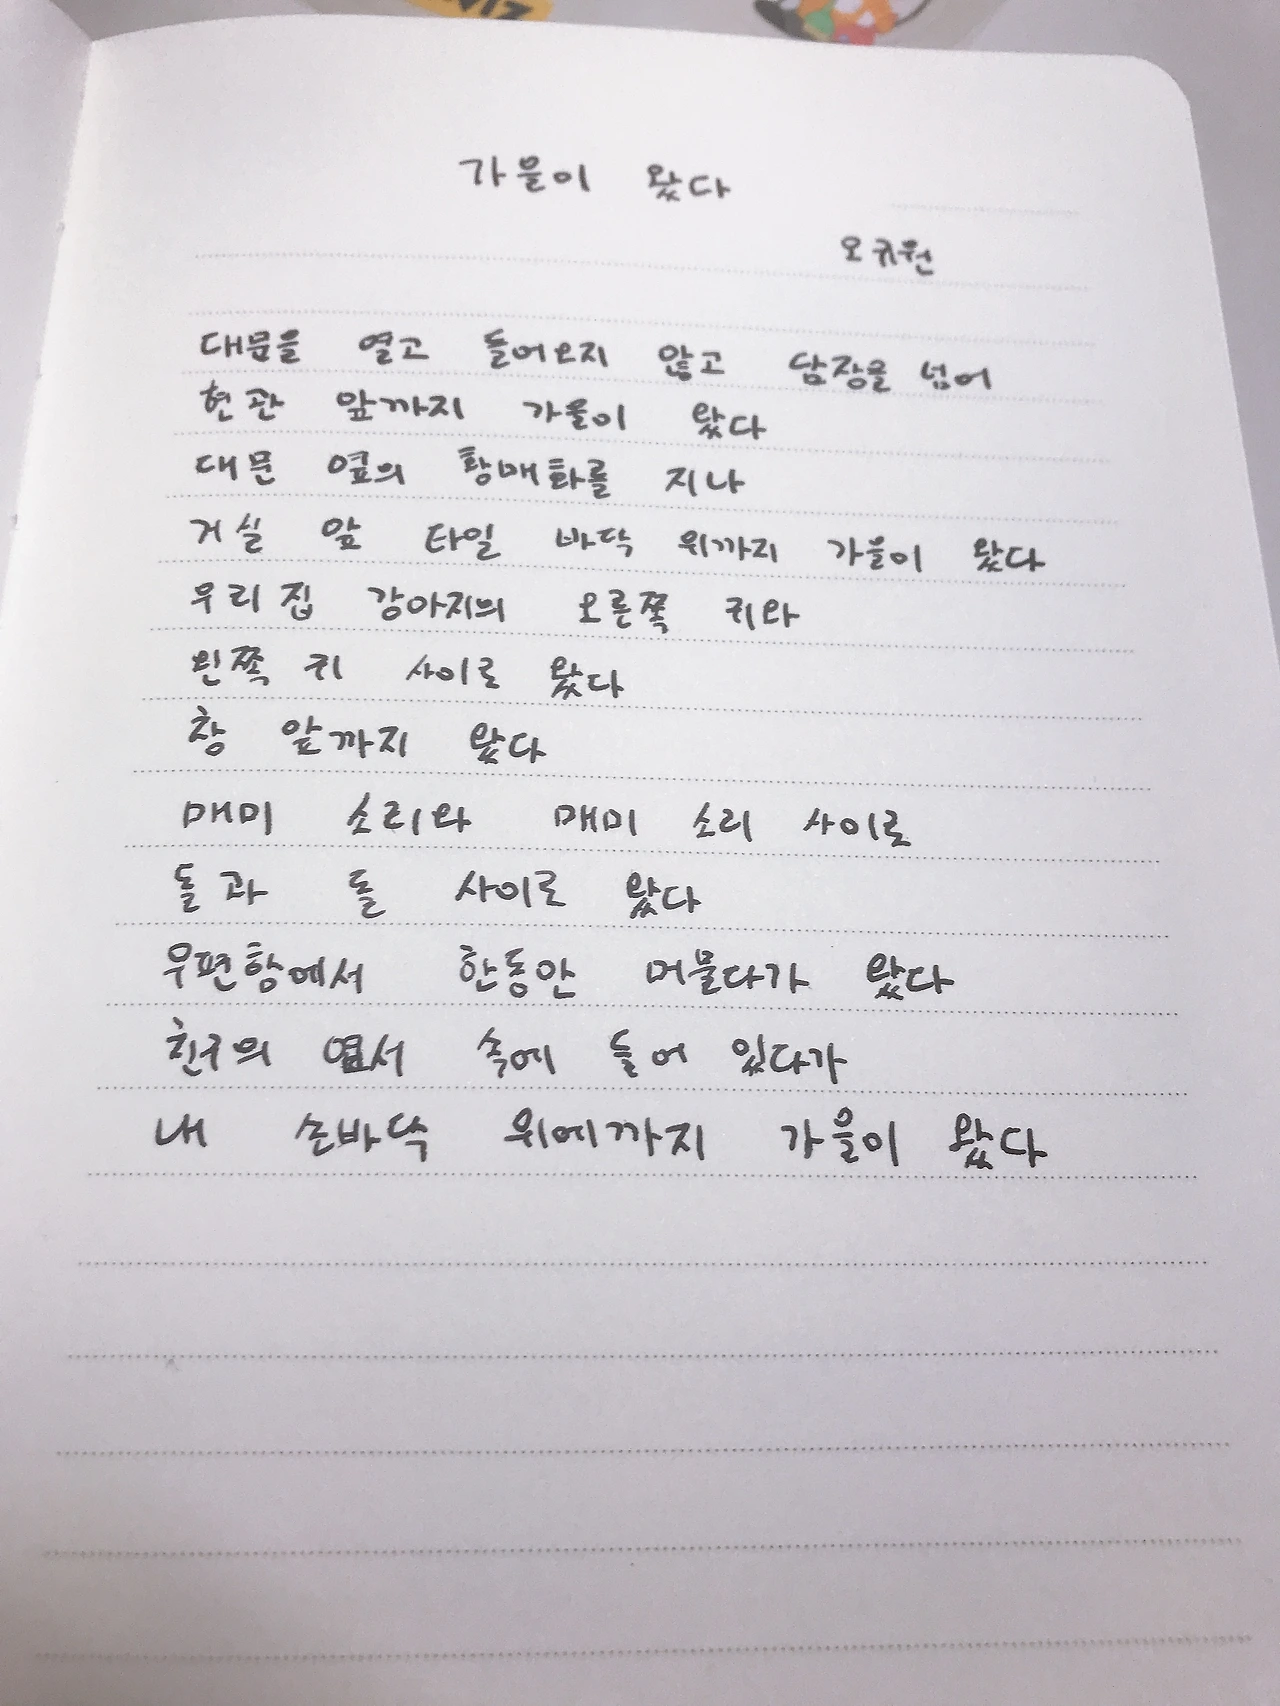 가을이 왔다
오귀원
대문을 열고 들어오지 않고 담장을 넘어
현관 앞까지 가을이 왔다
대문 옆의 황매화를 지나
거실 앞 타일 바닥 위까지 가을이 왔다
우리 집 강아지의 오른쪽 귀와
왼쪽 귀 사이로 왔다
창 앞까지 왔다
매미 소리와 매미 소리 사이로
돌과 돌 사이로 왔다
우편함에서 한동안 머물다가 왔다
친구의 엽서 속에 들어 있다가
내 손바닥 위에까지 가을이 왔다